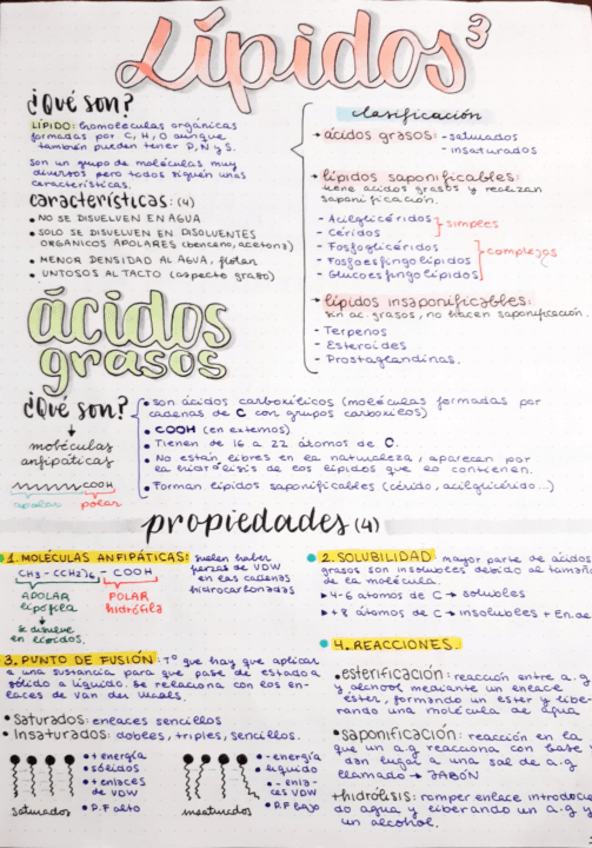 Lípidos³
¿Qué son?
LÍPIDO: biomoléculas orgánicas
formadas por C, H, O aunque
también pueden tener P, N y S.
Son un grupo de moléculas muy
diversos pero todos siguen unas
características.
características: (4)
• NO SE DISUELVEN EN AGUA
• SOLO SE DISUELVEN EN DISOLVENTES
ORGÁNICOS APOLARES (benceno, acetona)
• MENOR DENSIDAD AL AGUA, flotan
• UNTOSOS AL TACTO (aspecto graso)
clasificación
→ ácidos grasos: - saturados
- insaturados
→ lípidos saponificables:
tiene ácidos grasos y realizan
saponificación.
- Acilglicéridos
- Céridos
simples
- Fosfoglicéridos
- Fosfoesfingolípidos
- Glucoesfingolípidos
complejos
→ lípidos insaponificables:
sin ac. grasos, no hacen saponificación.
- Terpenos
- Esteroides
- Prostaglandinas.
ácidos
grasos
¿Qué son?
moléculas
anfipáticas
COOH
apolar polar
• son ácidos carboxílicos (moléculas formadas por
cadenas de C con grupos carboxilos)
• COOH (en extremos)
• Tienen de 16 a 22 átomos de C.
• No están libres en la naturaleza, aparecen por
la hidrólisis de los lípidos que lo contienen.
• Forman lípidos saponificables (cérido, acilglicérido...)
propiedades (4)
1. MOLÉCULAS ANFIPÁTICAS: suelen haber
fuerzas de VDW
en las cadenas
hidrocarbonadas
CH3 - (CH2)6 - COOH
APOLAR
lipófila
POLAR
hidrófila
se disuelve
en lípidos.
2. SOLUBILIDAD mayor parte de ácidos
grasos son insolubles debido al tamaño
de la molécula.
▸ 4-6 átomos de C → solubles
▸ +8 átomos de C → insolubles + En. de
3. PUNTO DE FUSIÓN: Tº que hay que aplicar
a una sustancia para que pase de estado a
sólido a líquido. Se relaciona con los en-
laces de Van der Waals.
• Saturados: enlaces sencillos
• Insaturados: dobles, triples, sencillos.
• + energía
• sólidos
• + enlaces
de VDW
• P.F alto
saturados
• - energía
• líquido
• - enla-
ces VDW
• P.F bajo
insaturados
4. REACCIONES.
• esterificación: reacción entre a.g
y alcohol mediante un enlace
éster, formando un éster y libe-
rando una molécula de agua
• saponificación: reacción en la
que un a.g reacciona con base y
dan lugar a una sal de a.g
llamado → JABÓN
+hidrólisis: romper enlace introducie
do agua y liberando un a.g y
un alcohol.